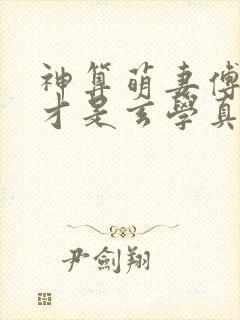 神算萌妻傅
才是玄學真
尹劍翔